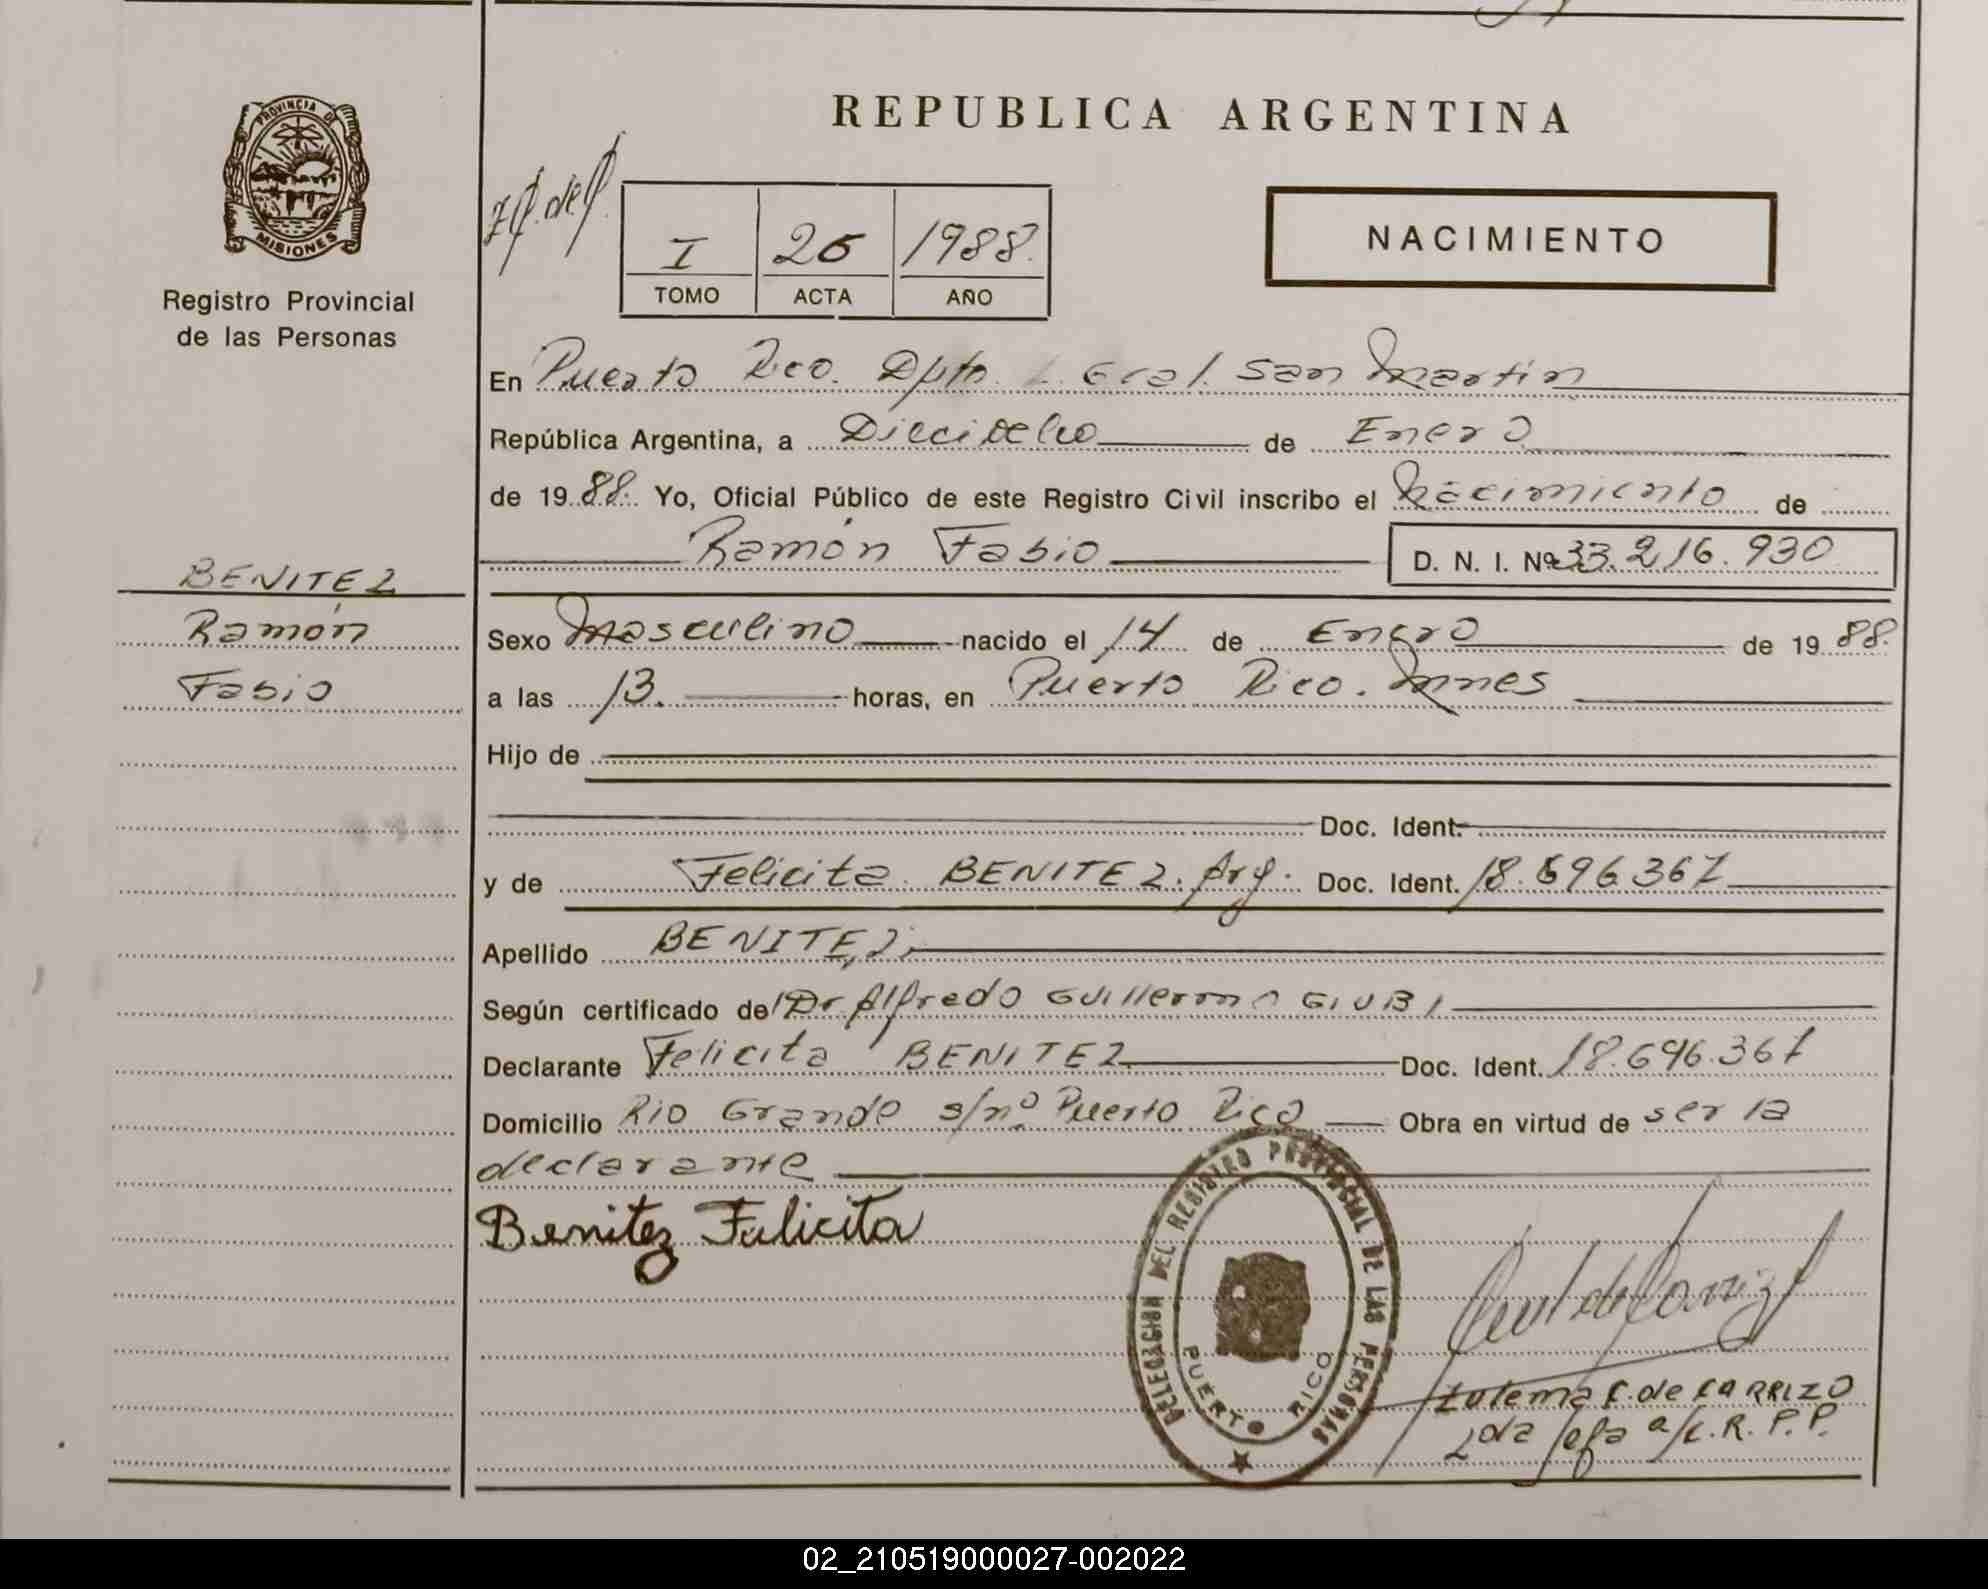 REPUBLICA ARGENTINA
PROVINCIA DE
MISIONES
Registro Provincial
de las Personas
I 26 1988.
TOMO ACTA AÑO
NACIMIENTO
En Puerto Rico. Dpto. L. Gral. San Martín
República Argentina, a Dieciocho de Enero
de 1988. Yo, Oficial Público de este Registro Civil inscribo el Nacimiento de
Ramón Fabio D. N. I. Nº 33.216.930
BENITEZ
Ramón
Fabio
Sexo Masculino nacido el 14 de Enero de 1988.
a las 13. horas, en Puerto Rico. Mnes
Hijo de
Doc. Ident.
y de Felicita BENITEZ. Arg. Doc. Ident. 18.696.367
Apellido BENITEZ.
Según certificado del Dr. Alfredo Guillermo GIUBI
Declarante Felicita BENITEZ Doc. Ident. 18.696.367
Domicilio Rio Grande s/nº. Puerto Rico Obra en virtud de ser la
declarante
Benitez Felicita
DELEGACION DEL REGISTRO PROVINCIAL DE LAS PERSONAS
PUERTO RICO
Zulema C. de CARRIZO
2da Jefa a/c. R. P. P.
02_210519000027-002022